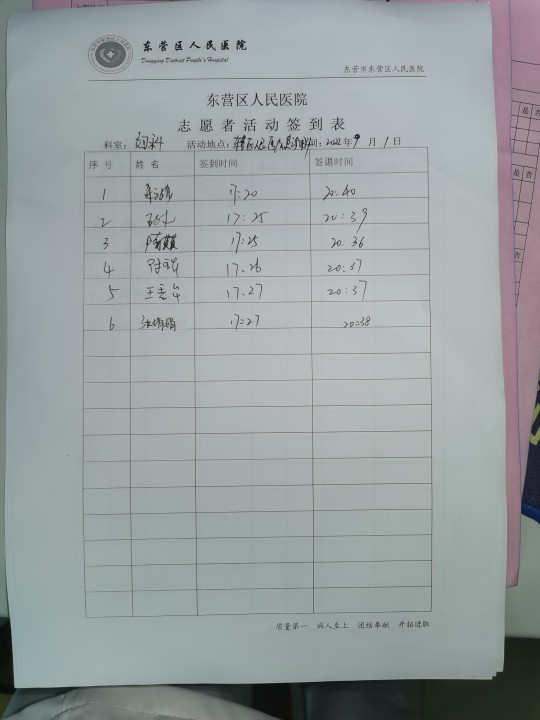 东营区人民医院
Dongying District People's Hospital
东营市东营区人民医院
东营区人民医院
志愿者活动签到表
科室: 妇科 活动地点: 时间: 2022年9月1日
序号 姓名 签到时间 签退时间
1 17:20 20:40
2 17:25 20:39
3 17:25 20:36
4 17:26 20:37
5 17:27 20:37
6 17:27 20:38
质量第一 病人至上 团结奉献 开拓进取
是 否